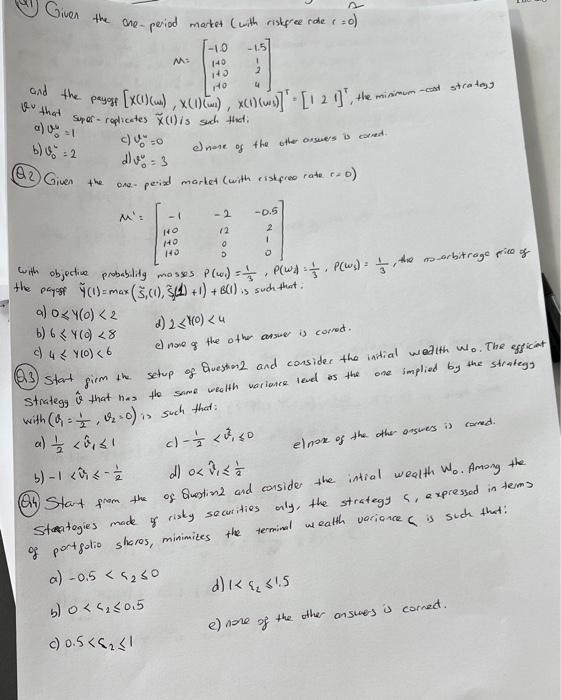 Q1) Given the one-period market (with riskfree rate r=0)
M= [-1.0 -1.5
1+0 1
1+0 2
1+0 4]
and the payoff [X(1)(ω1), X(1)(ω2), X(1)(ω3)]ᵀ=[1 2 1]ᵀ, the minimum-cost strategy
that super-replicates X̃(1) is such that:
a) =1 c) =0 e) none of the other answers is correct.
b) =2 d) =3
Q2) Given the one-period market (with riskfree rate r=0)
M'= [-1 -2 -0.5
1+0 12 2
1+0 0 1
1+0 0 0]
with objective probability masses P(ω1)=1/3, P(ω2)=1/3, P(ω3)=1/3, the no-arbitrage price of
the payoff Ỹ(1)=max(S̃1(1), +1)+B(1) is such that:
a) 0≤Y(0)<2 d) 2≤Y(0)<4
b) 6≤Y(0)<8 e) none of the other answer is correct.
c) 4≤Y(0)<6
Q3) Start from the setup of Question2 and consider the initial wealth W0. The efficient
strategy ϑ̂ that has the same wealth variance level as the one implied by the strategy
with (ϑ1=1/2, ϑ2=0) is such that:
a) 1/2<ϑ̂1≤1 c) -1/2<ϑ̂1≤0 e) none of the other answers is correct.
b) -1<ϑ̂1≤-1/2 d) 0<ϑ̂1≤1/2
Q4) Start from the of Question2 and consider the intial wealth W0. Among the
strategies made of risky securities only, the strategy ς, expressed in terms
of portfolio shares, minimizes the terminal wealth variance ς is such that:
a) -0.5<ς2≤0 d) 1<ς2≤1.5
b) 0<ς2≤0.5 e) none of the other answers is correct.
c) 0.5<ς2≤1